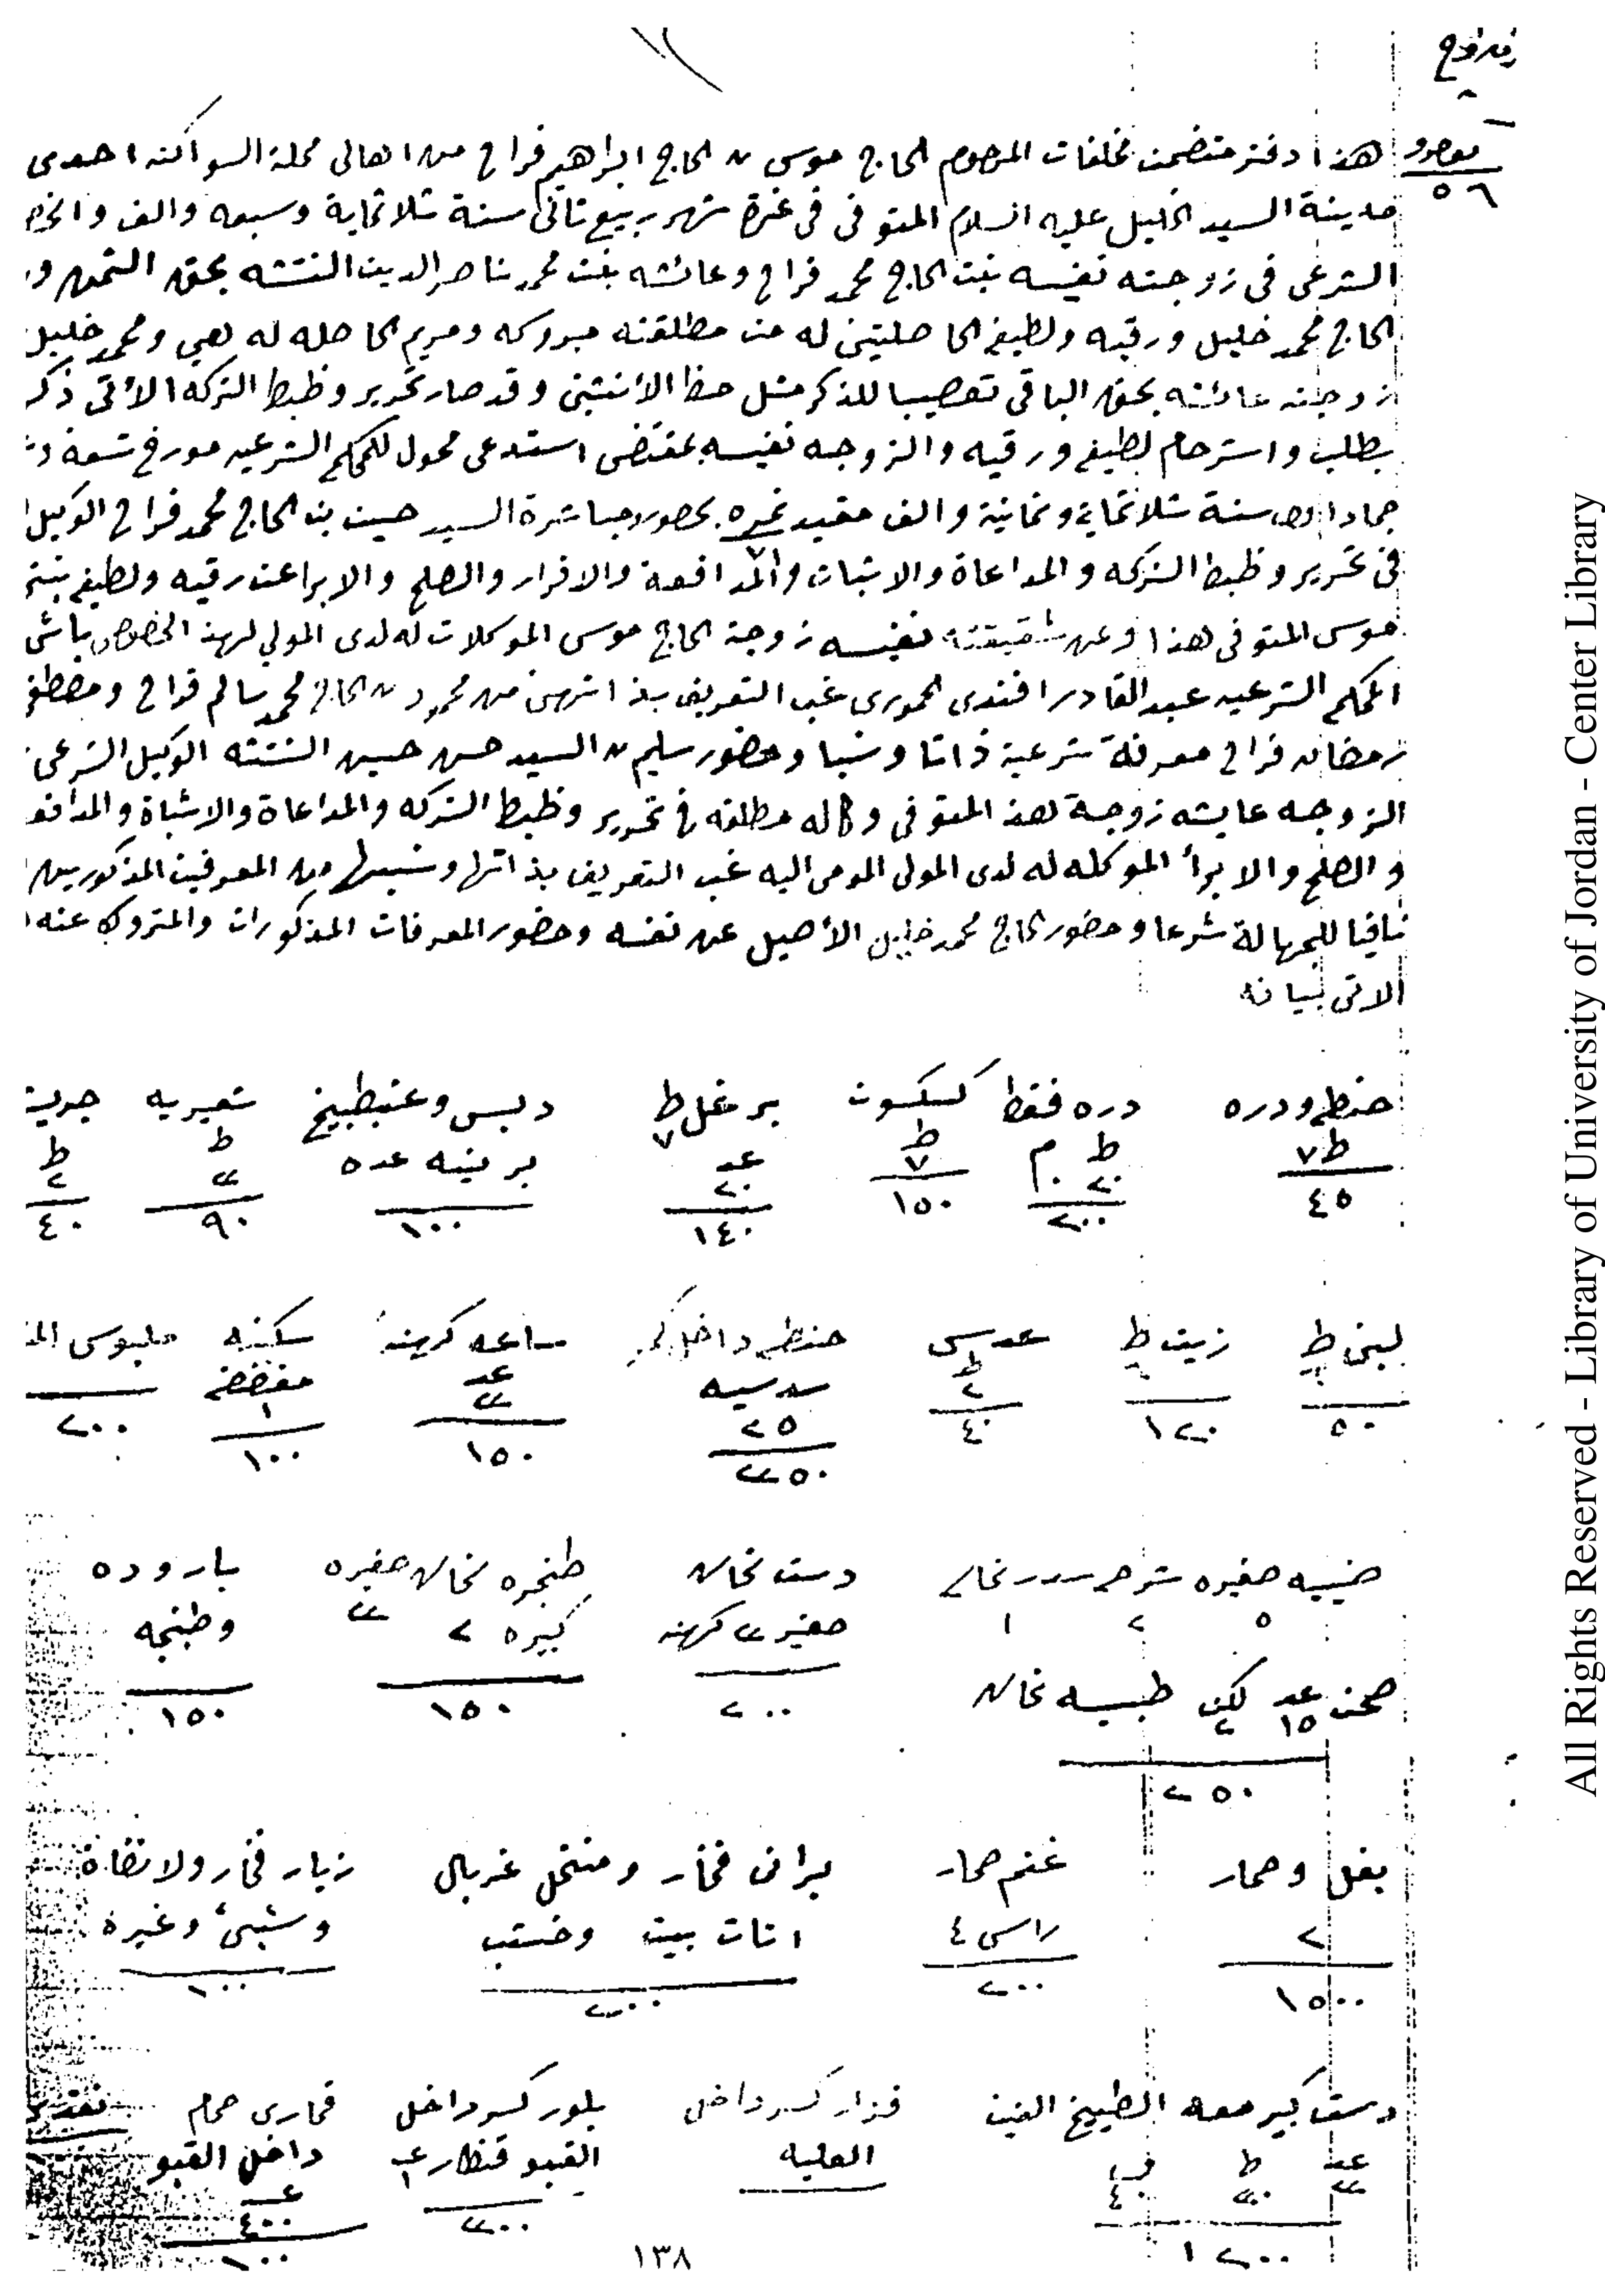 هذا دفتر متضمن مخلفات المرحوم الحاج موسى بن الحاج ابراهيم فراح من اهالي محلة السواكنه احدى
٥٦
مدينة السيد الخليل عليه السلام المتوفى في غرة شهر ربيع ثاني سنة ثلاثماية وسبعه والف
الشرعي في زوجته نفيسه بنت الحاج محمد فراح وعائشه بنت محمد ناصر الدين النتشه بحق الثمن و
الحاج محمد خليل ورقيه ولطيفه الحاصليتين له من مطلقته مبروكه ومريم الحاصله له هي ومحمد خليل
زوجته عائشه بحق الباقي تعصيبا للذكر مثل حظ الأنثيين وقد صار تحرير وظبط التركه الأتي ذكر
بطلب واسترحام لطيفه ورقيه والزوجه نفيسه بمقتضى استدعى محول للمحكمه الشرعيه مورخ تسعة
جماد سنة ثلاثماية وثمانية والف مقيد نمره بحضور مباشرة السيد حسين بن الحاج محمد فراح الوكيل
في تحرير وظبط التركه والمداعاة والاثبات والمدافعة والاقرار والصلح والابرا عن رقيه ولطيفه
موسى المتوفى هذا وعن شقيقته نفيسه زوجة الحاج موسى الموكلات له لدى المولي لهذ الخصوص باش
المحكمه الشرعيه عبد القادر افندي الحموري غب التعريف بذاتهن من محمود بن الحاج محمد سالم فراح ومصطفى
رمضان فراح معرفة شرعية ذاتا ونسبا وحضور سليم بن السيد حسن حسين النتشه الوكيل الشرعي
الزوجه عايشه زوجة لهذ المتوفى وكاله مطلقه في تحرير وظبط التركه والمداعاة والاثباة والمدافعه
والصلح والابرأ الموكله له لدى المولى المومى اليه غب التعريف بذاتها ونسبها من المعرفين المذكورين
نافيا للجهالة شرعا وحضور الحاج محمد خليل الأصيل عن نفسه وحضور المعرفات المذكورات والمتروك عنه
الاتي بيانه
حنطه ودره دره فقط كسكسون برغل ط دبس وعنبطبيخ شعيريه
ط ٧ ط ٢٠ ط ٧ ٧ عد ٢٠ برنيه عده ط ٣ ط ٢
٤٥ ٢٠٠ ١٥٠ ١٤٠ ١٠٠ ٩٠ ٤٠
لبن ط زيت ط عدس حنطه داخل ساعه كرهنه سكينه ملبوس
ط ٢ عد ٣ مفضضه ١
٢٥
٥٠ ١٢٠ ٤٠ ٣٥٠ ١٥٠ ١٠٠ ٢٠٠
صنيه صغيره دست نحاس طنجره نحاس صغيره باروده
٥ ٢ ١ صغير ٣ كهنه كبيره ٢ ٣ وطبنجه
صحن عد ١٥ لكن ٢ نحاس ٢٠٠ ١٥٠ ١٥٠
٢٥٠
بغل وحمار غنم حمار براني فخار ومنخل غربال زيار فخار
٢ راس ٤ اثات بيت وخشب وشيئ وغيره
١٥٠٠ ٢٠٠ ٢٠٠ ١٠٠
دست كبير معه الطبيخ قزاز كسر داخل بلور كسر داخل قماري حمام
عد ٣ ط ٣٠ ٤٠ العليه القبو قنطار داخل القبو
٤٠٠
١٢٠٠ ٣٠٠ ١٠٠
١٣٨
All Rights Reserved - Library of University of Jordan - Center Library